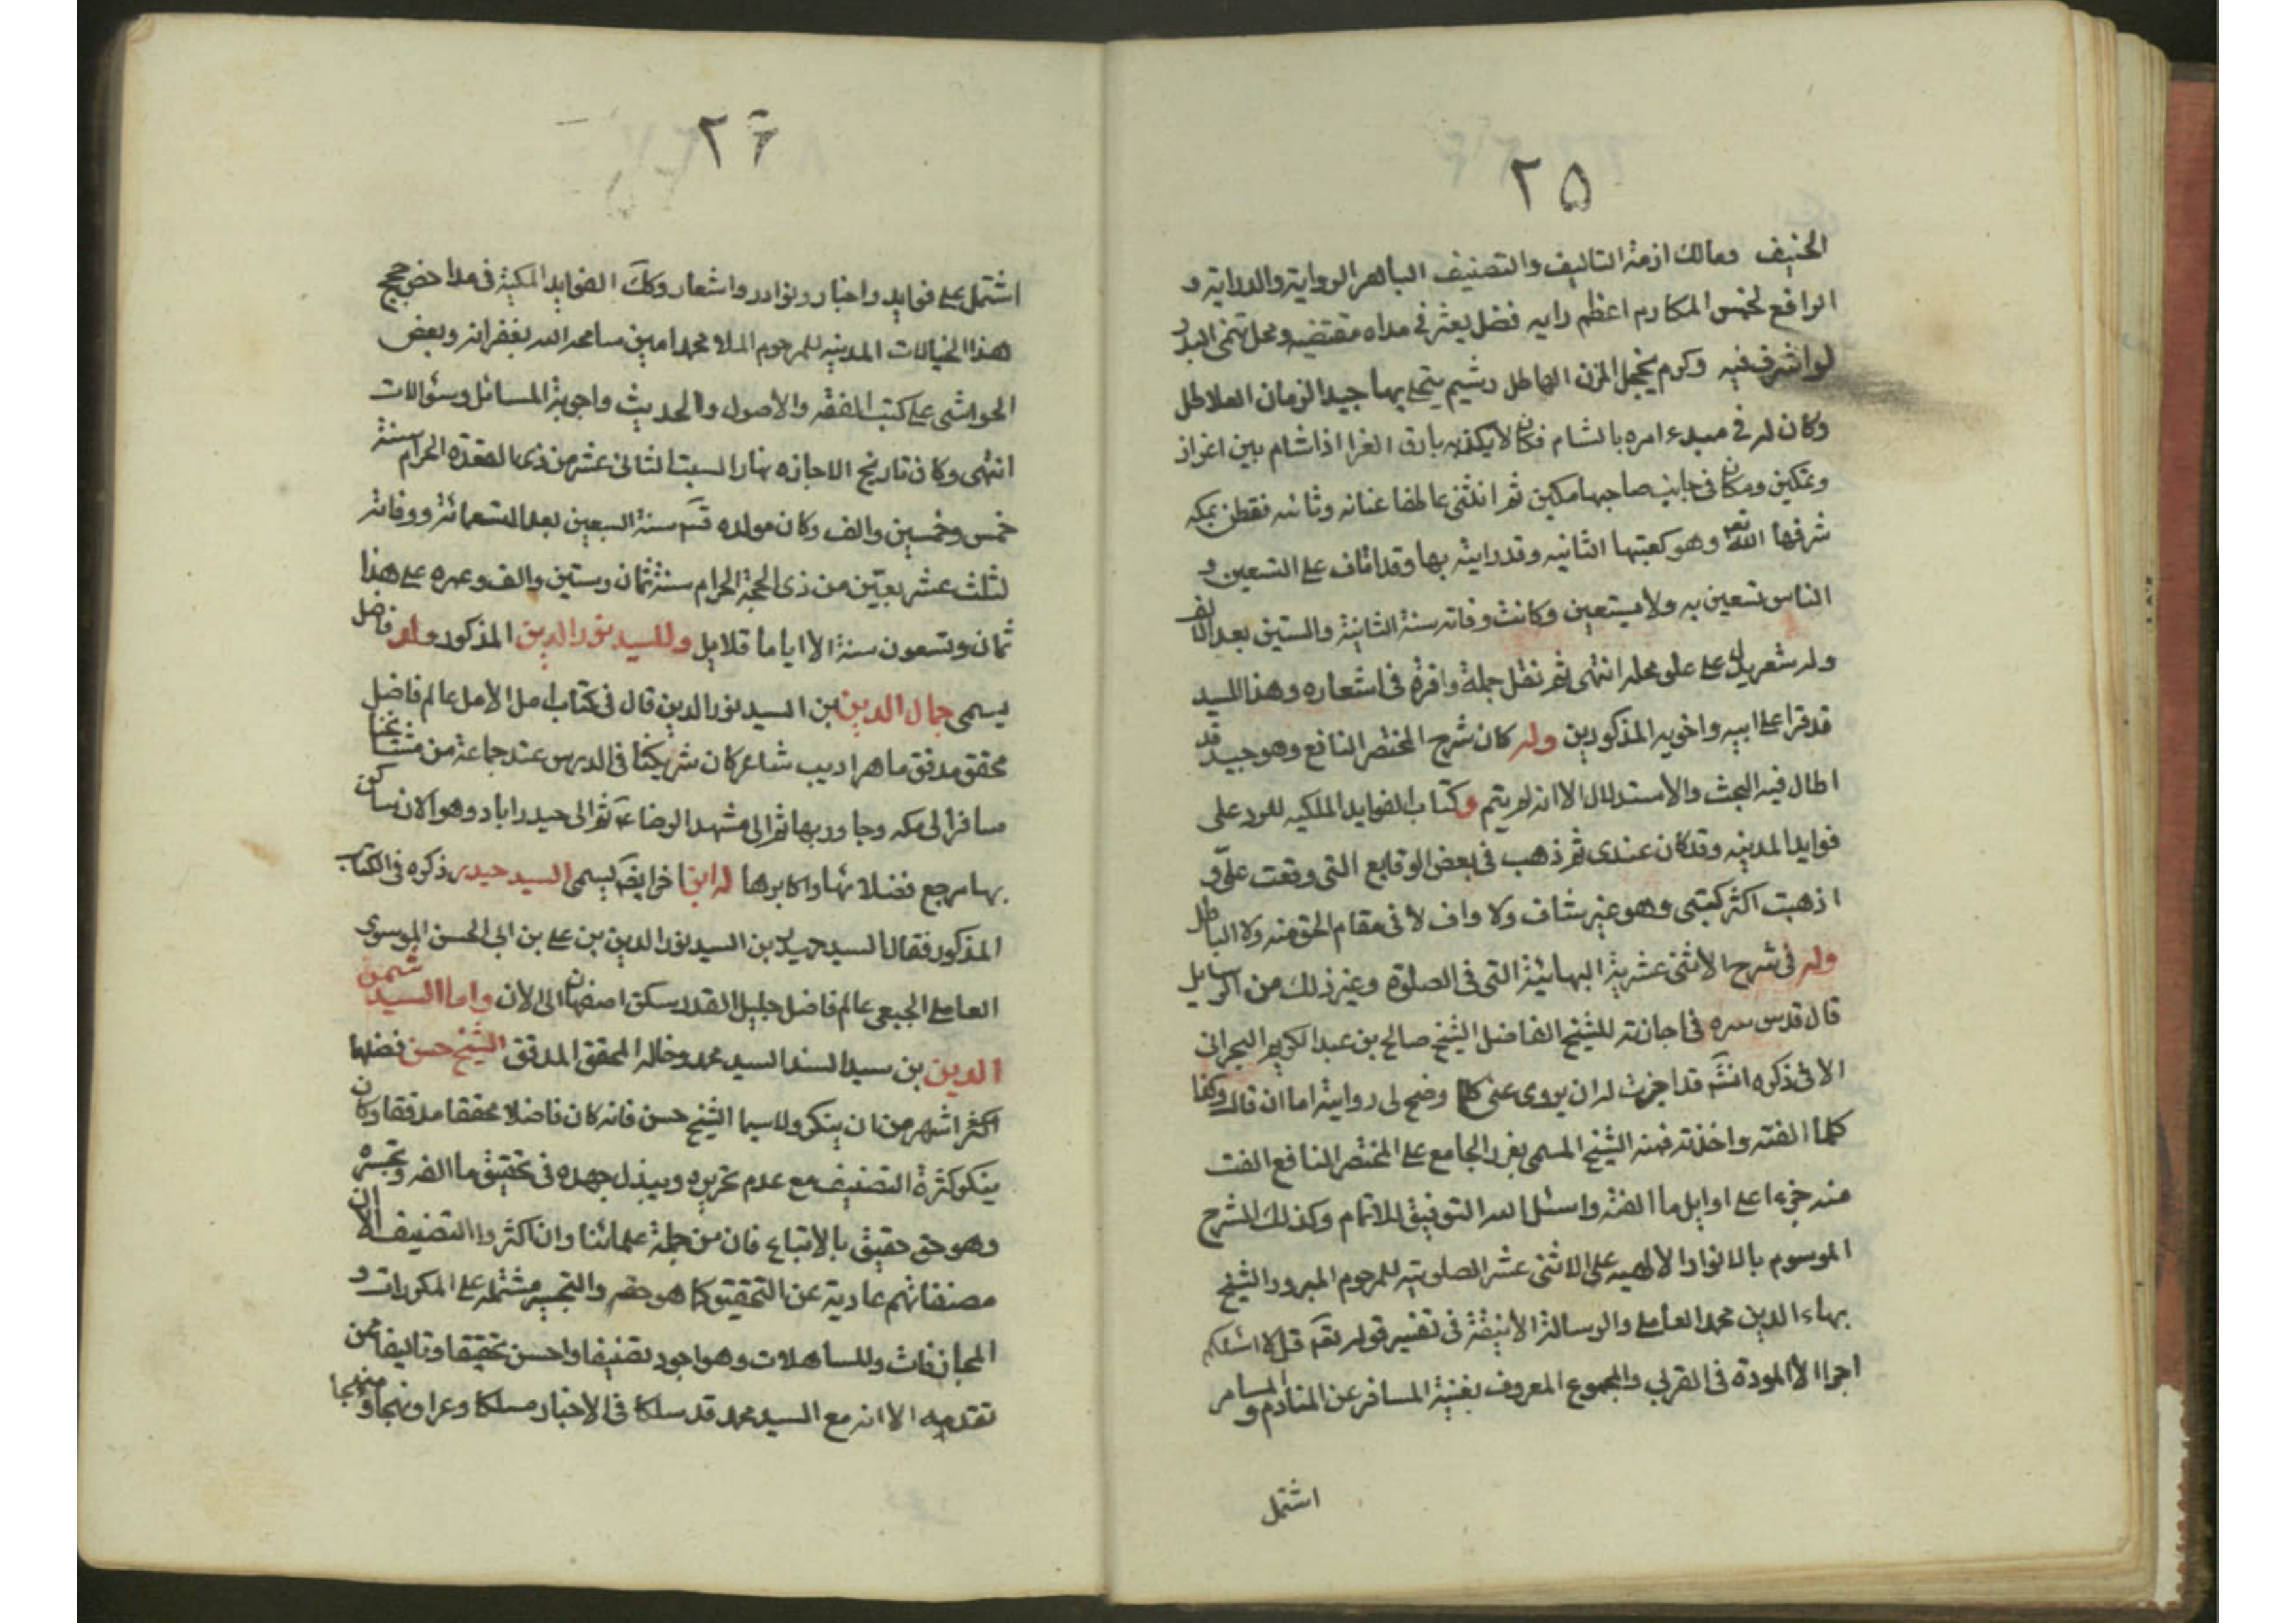 ٢٥
الحنيف ومالك ازمة التاليف والتصنيف الباهر الرواية والدراية و
الرافع لخميس المكارم اعظم رايه فضل يعثر في مداه مقتفيه ومحل يتمنى البدر
لو اشرق فيه وكرم يخجل المزن الهاطل وشيم يتحلى بها جيد الزمان العلاطل
وكان له في مبدء امره بالشام فكان لا يكذبه بارق الغرا اذا شام بين اعزاز
وتمكين ومكان في جانب صاحبها مكين ثم انثنى عاطفا عنانه وثانيه فقطن بمكه
شرفها الله تعه وهو كعبتها الثانيه وقد رايته بها وقد اناف على التسعين و
الناس تستعين به ولا يستعين وكانت وفاته سنة الثانية والستين بعد الالف
وله شعر يدل على علو محله انتهى ثم نقل جملة وافرة في اشعاره وهذا السيد
قد قرا على ابيه واخويه المذكورين وله كان شرح المختصر النافع وهو جيد قد
اطال فيه البحث والاستدلال الا انه لم يتم وكتاب الفوايد الملكيه للرد على
فوايد المدينه وقد كان عندي ثم ذهب في بعض الوقايع التي وقعت علي و
اذهبت اكثر كتبي وهو غير شاف ولا واف لا في مقام الحق منه ولا الباطل
وله في شرح الاثنى عشرية البهائية التي في الصلوة وغير ذلك من الرسايل
قال قدس سره في اجازته للشيخ الفاضل الشيخ صالح بن عبد الكريم البحراني
الاتي ذكره انشَه قد اجزت له ان يروى عني كلما وضح لي روايته اما ان قال وكذا
كلما الفته واخذته فمنه الشيخ المسمى بغرر الجامع على المختصر النافع الفت
منه جزءا على اوايل ما الفته واسئل الله التوفيق للاتمام وكذلك الشرح
الموسوم بالانوار الالهيه على الاثنى عشر الصلوتيه للمرحوم المبرور الشيخ
بهاء الدين محمد العاملي والرسالة الانيقة في تفسير قوله تعَه قل لا اسئلكم
اجرا الا المودة في القربي والمجموع المعروف بغنية المسافر عن المنادم والمسامر
اشتمل
٢٦
اشتمل على فوايد واخبار ونوادر واشعار وكَك الفوايد المكية في مداحض حجج
هذا الخيالات المدينيه للمرحوم الملا محمد امين سامحه الله بغفرانه وبعض
الحواشي على كتب الفقه والاصول والحديث واجوبة المسائل وسئوالات
انتهى وكان تاريخ الاجازه نهار السبت الثاني عشر من ذي القعدة الحرام سنة
خمس وخمسين والف وكان مولده قسَه سنة السبعين بعد التسعمائة ووفاته
لثلث عشر بقين من ذي الحجة الحرام سنة ثمان وستين والف وعمره على هذا
ثمان وتسعون سنة الا اياما قلايل وللسيد نور الدين المذكور ولد فاضل
يسمى جمال الدين بن السيد نور الدين قال في كتاب امل الامل عالم فاضل
محقق مدقق ماهر اديب شاعر كان شريكنا في الدرس عند جماعة من مشايخنا
سافر الى مكه وجاور بها ثم الى مشهد الرضا عَه ثم الى حيدراباد وهو الان ساكن
بها مرجع فضلائها واكابرها له ابن اخر ايضَه يسمى السيد حيدر ذكره في الكتاب
المذكور فقال السيد حيدر بن السيد نور الدين بن علي بن ابي الحسن الموسوي
العاملي الجبعي عالم فاضل جليل القدر سكن اصفهان الى الان واما السيد شمس
الدين بن سيد السند السيد محمد وخاله المحقق المدقق الشيخ حسن فضلها
اكثر اشهر من ان ينكر ولا سيما الشيخ حسن فانه كان فاضلا محققا مدققا وكان
ينكر كثرة التصنيف مع عدم تحريره ويبذل جهده في تحقيق ما الفه وتحبيره
وهو حق حقيق بالاتباع فان من جملة علمائنا وان اكثروا التصنيف الا ان
مصنفاتهم عارية عن التحقيق كما هو حقه والتحبير مشتمله على المكررات و
المجازفات والمساهلات وهو اجود تصنيفا واحسن تحقيقا وتاليفا ممن
تقدمه الا انه مع السيد محمد قد سلكا في الاخبار مسلكا وعرا ونهجا منهجا